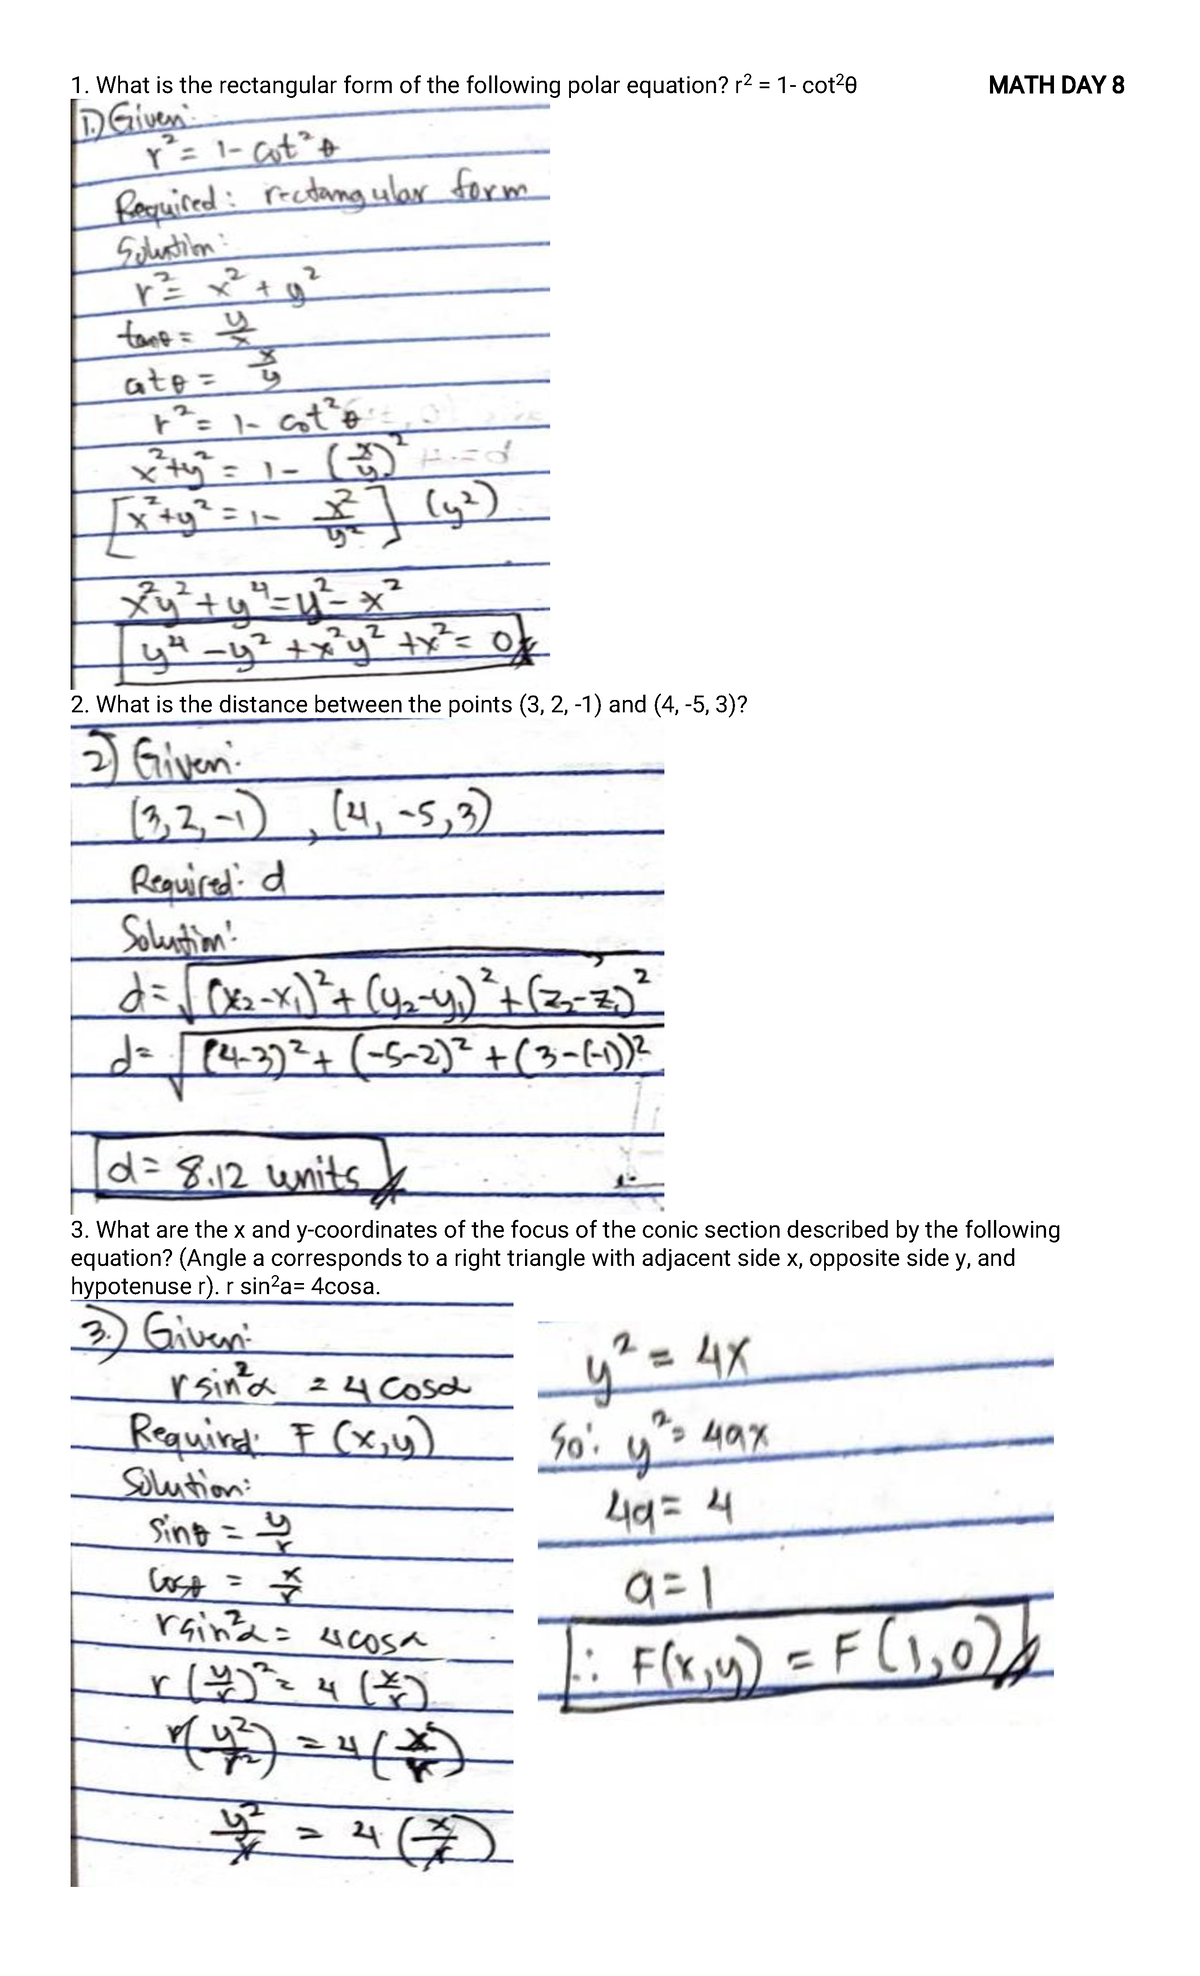 1. What is the rectangular form of the following polar equation? r² = 1- cot²θ MATH DAY 8
1.) Given:
r² = 1- cot²θ
Required: rectangular form
Solution:
r² = x² + y²
tanθ = y/x
cotθ = x/y
r² = 1- cot²θ
x²+y² = 1- (x/y)²
[x²+y² = 1- x²/y²] (y²)
x²y²+y⁴=y²-x²
y⁴-y²+x²y²+x²= 0
2. What is the distance between the points (3, 2, -1) and (4, -5, 3)?
2) Given:
(3,2,-1) , (4, -5,3)
Required: d
Solution:
d= √(x₂-x₁)²+(y₂-y₁)²+(z₂-z₁)²
d= √(4-3)²+(-5-2)²+(3-(-1))²
d= 8.12 units
3. What are the x and y-coordinates of the focus of the conic section described by the following
equation? (Angle a corresponds to a right triangle with adjacent side x, opposite side y, and
hypotenuse r). r sin²a= 4cosa.
3.) Given:
rsin²α = 4 cosα
Required: F (x,y)
Solution:
sinθ = y/r
cosθ = x/r
rsin²α= 4cosα
r(y/r)² = 4(x/r)
r(y²/r²) = 4(x/r)
y²/r = 4(x/r)
y² = 4x
So: y² = 4ax
4a= 4
a=1
∴ F(x,y) = F(1,0)